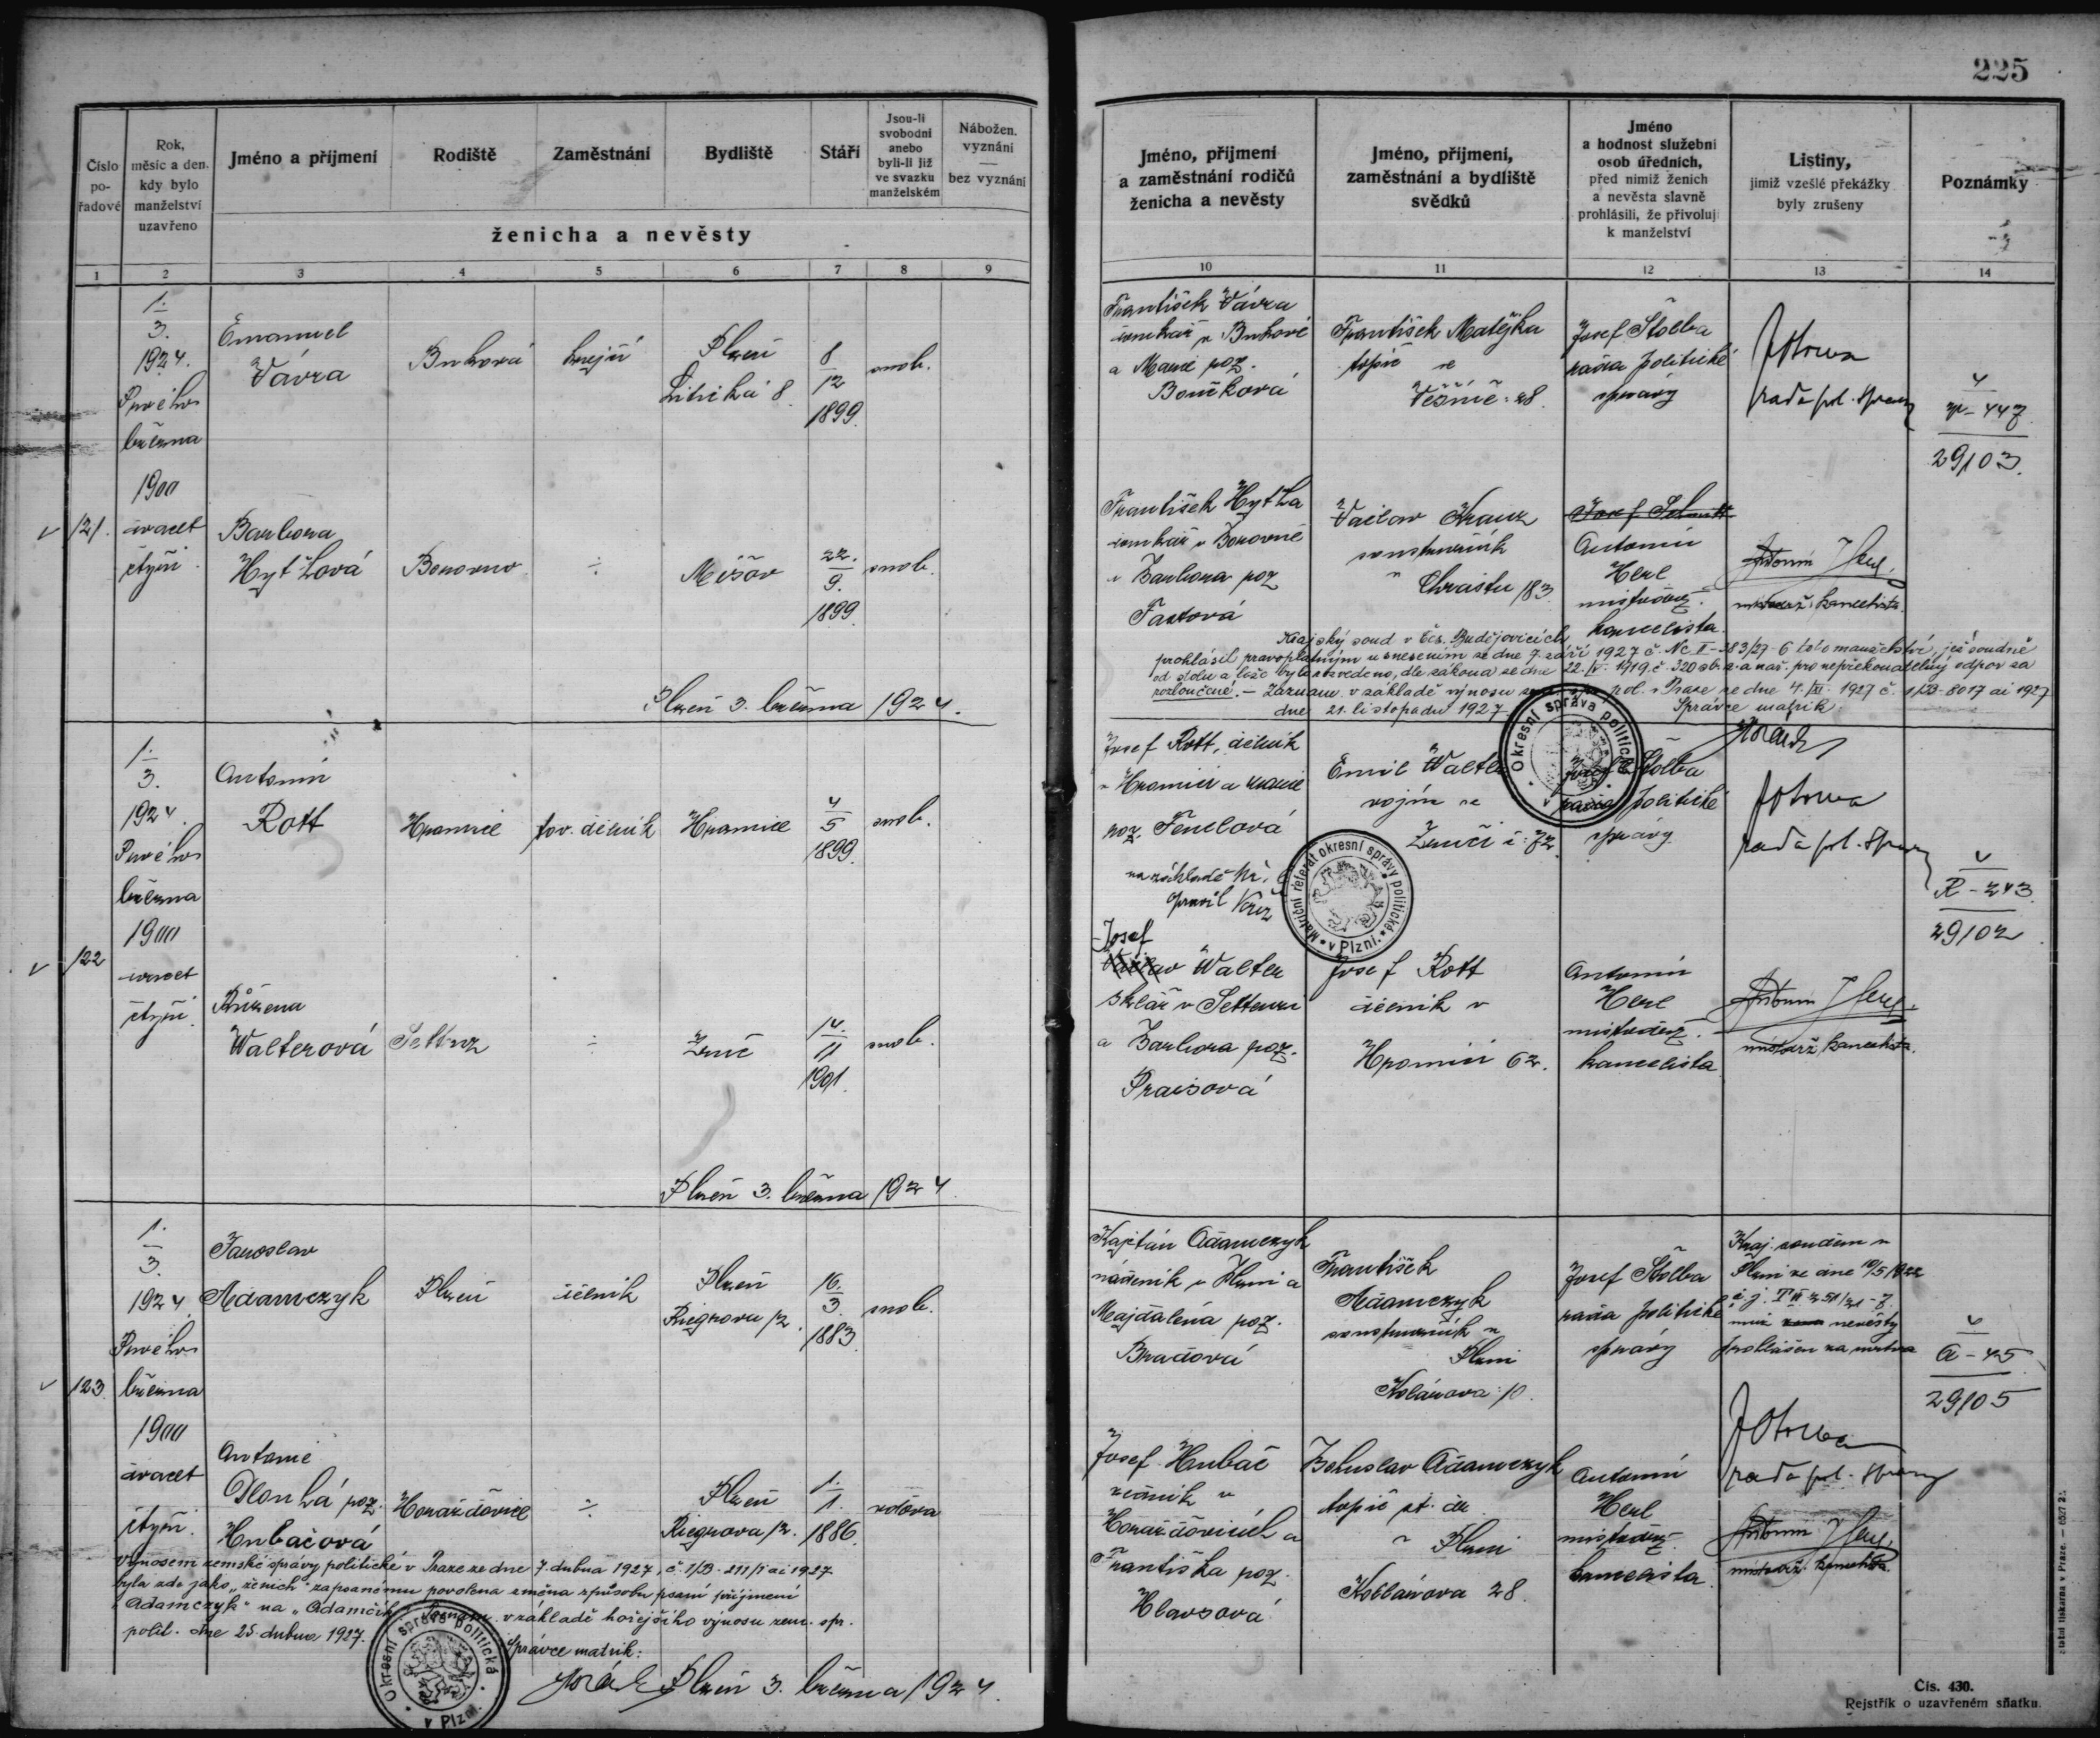 225
Číslo
po-
řadové
Rok,
měsíc a den,
kdy bylo
manželství
uzavřeno
Jméno a příjmení
Rodiště
Zaměstnání
Bydliště
Stáří
Jsou-li
svobodni
anebo
byli-li již
ve svazku
manželském
Nábožen.
vyznání
—
bez vyznání
ženicha a nevěsty
1 2 3 4 5 6 7 8 9
Jméno, příjmení
a zaměstnání rodičů
ženicha a nevěsty
Jméno, příjmení,
zaměstnání a bydliště
svědků
Jméno
a hodnost služební
osob úředních,
před nimiž ženich
a nevěsta slavně
prohlásili, že přivolují
k manželství
Listiny,
jimiž vzešlé překážky
byly zrušeny
Poznámky
10 11 12 13 14
121.
1.
3.
1924.
Prvého
března
1900
dvacet
čtyři.
Emanuel
Vávra
Buková
krejčí
Plzeň
Litická 8.
8
12
1899.
svob.
Barbora
Hyťhová
Borovno
÷
Mešov
22.
9.
1899.
svob.
Plzeň 3. března 1924.
František Vávra
domkář v Bukové
a Marie poz.
Boučková
František Matějka
topič ve
Vešíně 28.
Josef Štolba
rada politické
správy
JŠtolba
rada pol. správy
V-447
29103.
František Hytha
domkář v Borovně
a Barbora poz
Faxtová
Václav Kranz
soustružník
v Chrástu 183
Antonín
Herl
místodrž.
kancelista.
Antonín Herl.
místodrž. kancelista.
Krajský soud v Čes. Budějovicích
prohlásil pravoplatným usnesením ze dne 7. září 1927 č. Nc II-383/27-6 toto manželství, jež soudně
od stolu a lože bylo rozvedeno, dle zákona ze dne 22./V. 1919. č. 320 sb. z. a nař. pro nepřekonatelný odpor za
rozloučené. – Záznam v základě výnosu zem. spr. pol. v Praze ze dne 4./XI. 1927 č. 1/B-8017 ai 1927
dne 21. listopadu 1927
Správce matrik:
Okresní správa politická v Plzni.
122
1.
3.
1924.
Prvého
března
1900
dvacet
čtyři.
Antonín
Rott
Hromnice
tov. dělník
Hromnice
4
5
1899.
svob.
Růžena
Walterová
Settenz
÷
Zruč
14.
11
1901.
svob.
Plzeň 3. března 1924.
Josef Rott, dělník
v Hromnici a Marie
poz. Fenclová
na základě
opravil
Matriční referát okresní správy politické v Plzni.
Emil Walter
vojín ve
Zruči č. 72.
Josef Štolba
rada politické
správy.
JŠtolba
rada pol. správy
R-243.
29102
Josef
Václav Walter
sklář v Settenzi
a Barbora poz.
Praisová
Josef Rott
dělník v
Hromnici 62.
Antonín
Herl
místodrž.
kancelista
Antonín Herl.
místodrž. kancelista.
123.
1.
3.
1924
Prvého
března
1900
dvacet
čtyři.
Jaroslav
Adamczyk
Plzeň
dělník
Plzeň
Riegrova 12.
16.
3.
1883
svob.
Antonie
Dlouhá poz.
Hubačová
Horažďovice
÷
Plzeň
Riegrova 12.
1.
1.
1886.
vdova
Výnosem zemské správy politické v Praze ze dne 7. dubna 1927, č. 1/B-211/1 ai 1927
byla zde jako „ženich“ zapsanému povolena změna způsobu psaní příjmení
„Adamczyk“ na „Adamčík“. Záznam v základě hořejšího výnosu zem. spr.
polit. dne 25. dubna 1927.
Správce matrik:
Okresní správa politická v Plzni.
Plzeň 3. března 1924.
Kajetán Adamczyk
nádeník v Plzni a
Majdalena poz.
Bradová
František
Adamczyk
soustružník v
Plzni
Kolárova 10.
Josef Štolba
rada politické
správy
Kraj. soudem v
Plzni ze dne 10/5 1922
č. j. T VI 251/21-7
muž nevěsty
prohlášen za mrtva
JŠtolba
rada pol. správy
A-45
29105
Josef Hubač
řezník v
Horažďovicích a
Františka poz.
Hlavsová
Bohuslav Adamczyk
topič st. dr.
v Plzni
Kollárova 28.
Antonín
Herl
místodrž.
kancelista.
Antonín Herl.
místodrž. kancelista.
Čís. 430.
Rejstřík o uzavřeném sňatku.
Státní tiskárna v Praze.